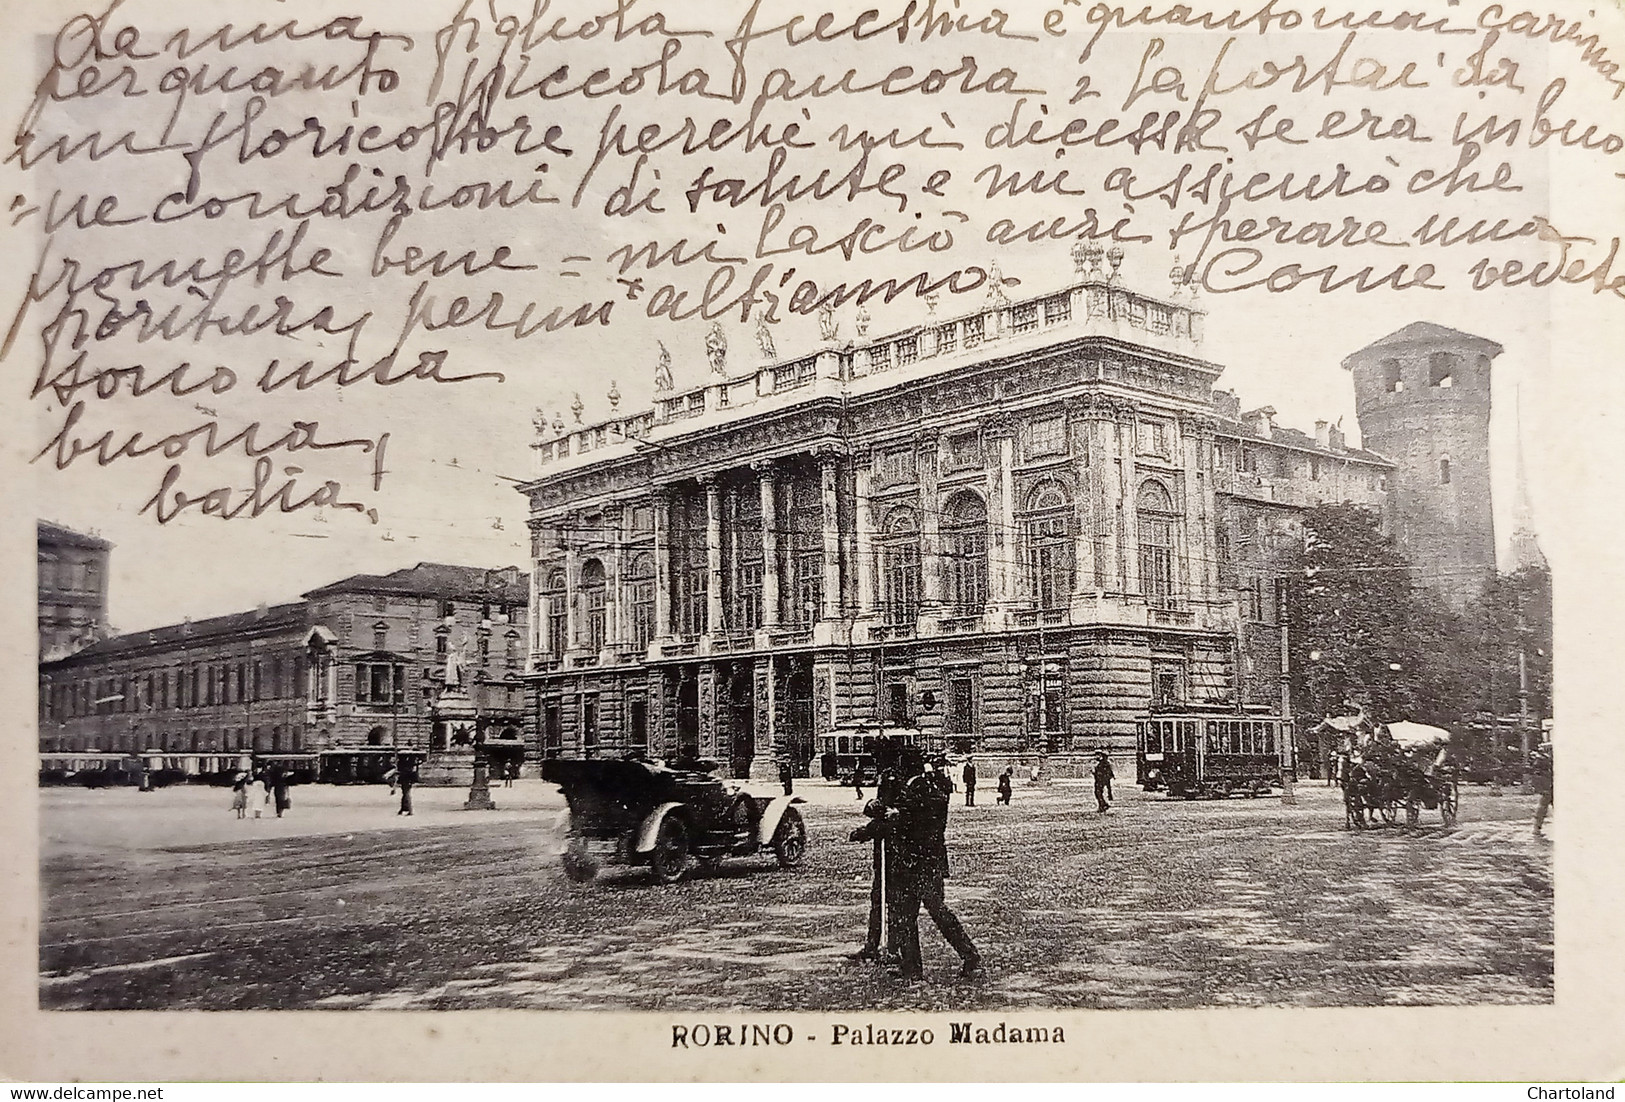 La mia figliola fucsina è quantomai carina,
per quanto piccola ancora, la portai da
un floricoltore perché mi dicesse se era in buo-
=ne condizioni di salute, e mi assicurò che
promette bene = mi lasciò anzi sperare una
fioritura, per un altr'anno. Come vedete
sono mia
buona
balia!
RORINO - Palazzo Madama
Chartoland